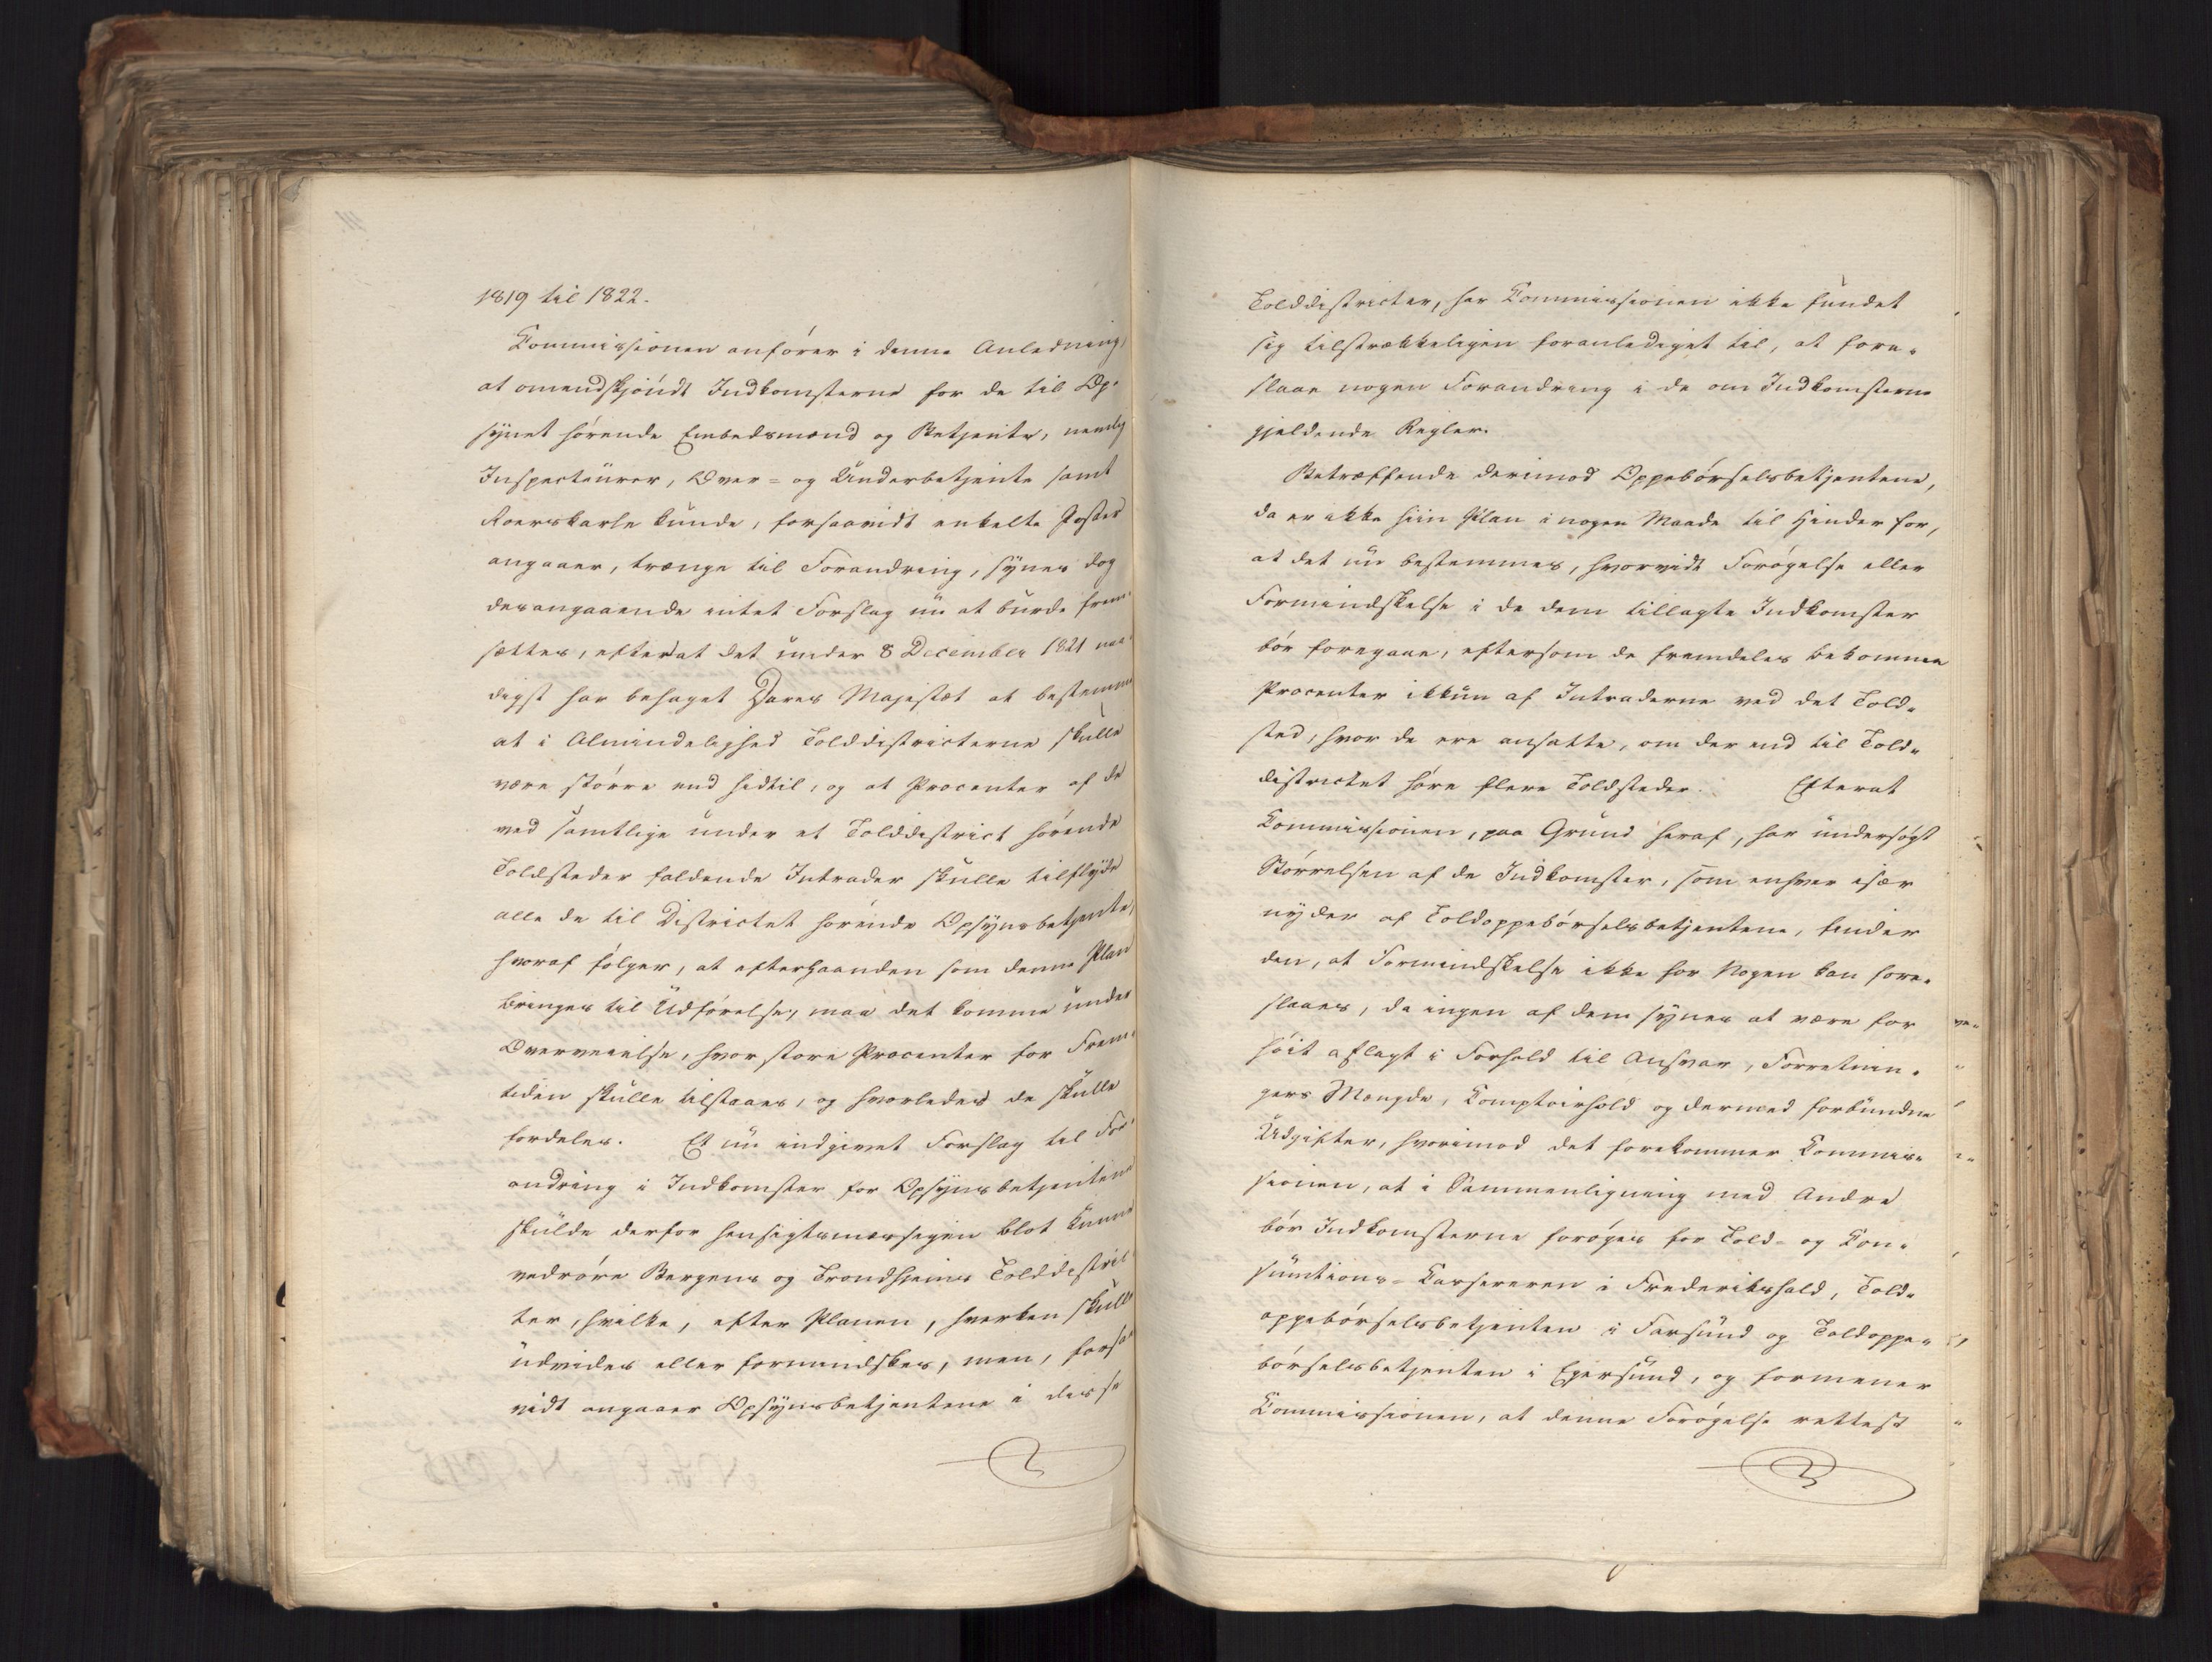 1819 til 1822.
Commissionen anfører i denne Anledning,
at omendskjøndt Indkomsterne for de til Op-
synet hørende Embedsmænd og Betjente, nemlig
Inspecteurer, Over- og Underbetjente samt
Roerskarle kunde, forsaavidt enkelte Poster
angaaer, trænge til Forandring, synes dog
desangaaende intet Forslag nu at burde frem-
sættes, efterat det under 8 December 1821 naa-
digst har behaget Deres Majestæt at bestemme
at i Almindelighed Tolddistricterne skulle
være større end hidtil, og at Procenter af de
ved samtlige under et Tolddistrict hørende
Toldsteder faldende Intrader skulle tilflyde
alle de til Districtet hørende Opsynsbetjente,
hvoraf følger, at efterhaanden som denne Plan
bringes til Udførelse, maa det komme under
Overveielse, hvor store Procenter for Frem-
tiden skulle tilstaaes, og hvorledes de skulle
fordeles. Et nu indgivet Forslag til For-
andring i Indkomster for Opsynsbetjentene
skulde derfor hensigtsmæssigen blot kunne
vedrøre Bergens og Trondhjems Tolddistric-
ter, hvilke, efter Planen, hverken skulle
udvides eller formindskes, men, forsaa-
vidt angaaer Opsynsbetjentene i disse
Tolddistricter, har Commissionen ikke fundet
sig tilstrækkeligen foranlediget til, at fore-
slaae nogen Forandring i de om Indkomsterne
gjeldende Regler.
Betræffende derimod Oppebørselsbetjentene,
da er ikke hiin Plan i nogen Maade til Hinder for,
at det nu bestemmes, hvorvidt Forøgelse eller
Formindskelse i de dem tillagte Indkomster
bør foregaae, eftersom de fremdeles bekomme
Procenter ikkun af Intraderne ved det Told-
sted, hvor de ere ansatte, om der end til Told-
districtet høre flere Toldsteder. Efterat
Commissionen, paa Grund heraf, har undersøgt
Størrelsen af de Indkomster, som enhver især
nyder af Toldoppebørselsbetjentene, finder
den, at Formindskelse ikke for Nogen kan fore-
slaaes, da ingen af dem synes at være for
høit aflagt i Forhold til Ansvar, Forretnin-
gers Mængde, Comptoirhold og dermed forbundne
Udgifter, hvorimod det forekommer Commis-
sionen, at i Sammenligning med Andre
bør Indkomsterne forøges for Told- og Con-
sumtions-Cassereren i Frederikshald, Told-
oppebørselsbetjenten i Farsund og Toldoppe-
børselsbetjenten i Egersund, og formener
Commissionen, at denne Forøgelse rettest